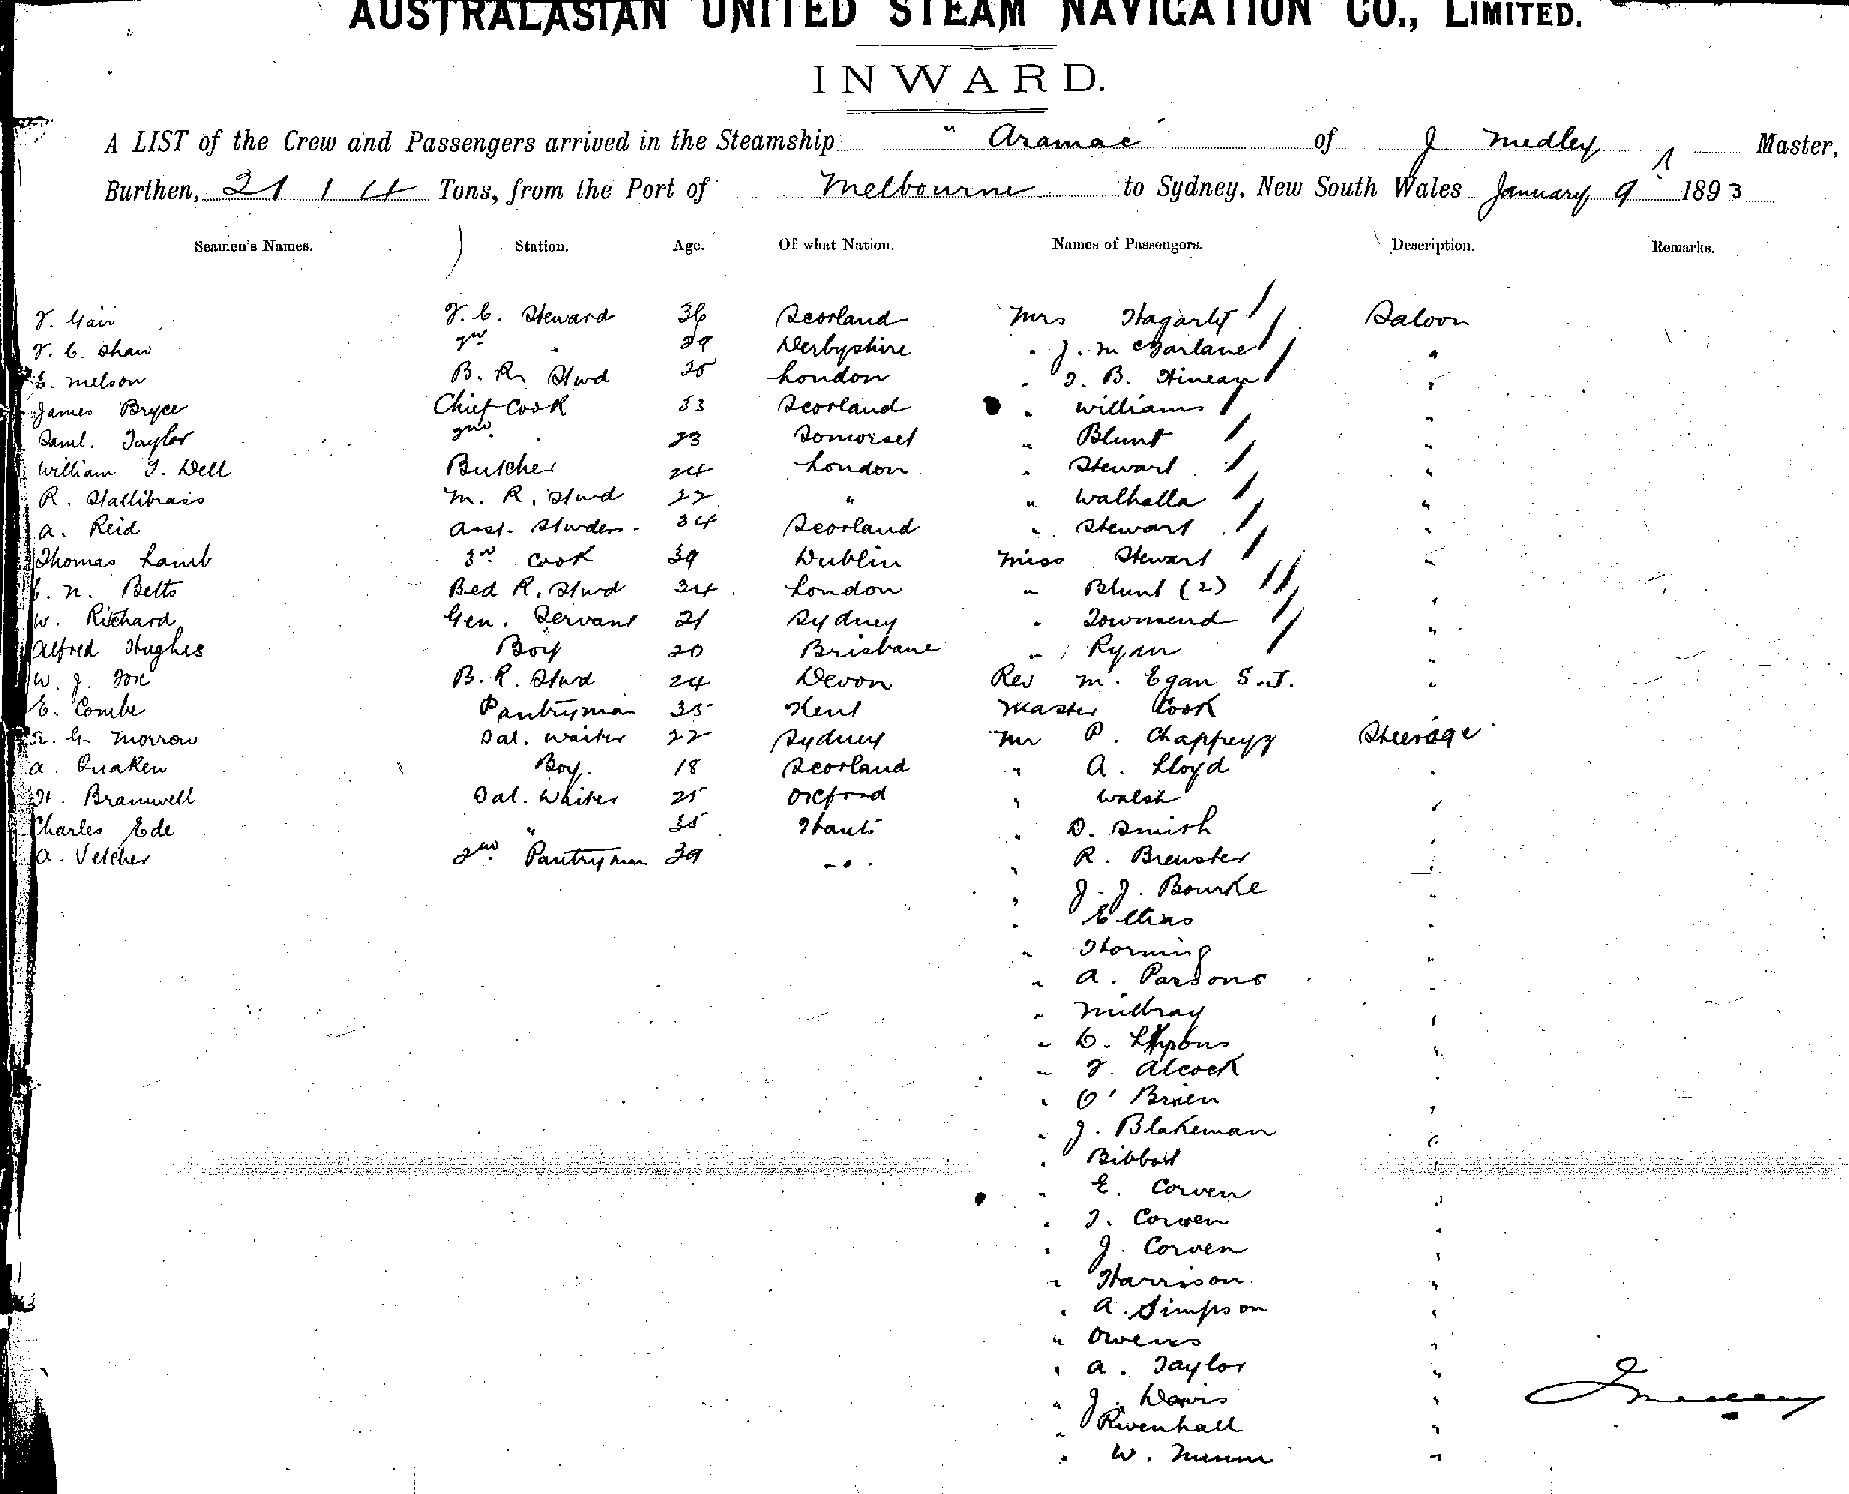 AUSTRALASIAN UNITED STEAM NAVIGATION CO., LIMITED.
INWARD.
A LIST of the Crew and Passengers arrived in the Steamship "Aramac" of J Medley Master,
Burthen, 2114 Tons, from the Port of Melbourne to Sydney, New South Wales January 9 1893
Seamen's Names. Station. Age. Of what Nation. Names of Passengers. Description. Remarks.
F. C. Steward 36 Scotland Mrs Hagarty Saloon
F. C. Shaw 2nd " 29 Derbyshire " J. McFarlane "
B. R. Stwd London " "
James Bryce Chief Cook 53 Scotland " Williams "
Saml. Taylor 2nd " 23 Somerset " Blunt "
William J. Dell Butcher 24 London " Stewart "
R. Stallibrass M. R. Stwd 22 " " Walhalla "
A. Reid Asst. Stwdess. 34 Scotland " Stewart "
Thomas Lamb 3rd Cook 39 Dublin Miss Stewart "
N. Betts Bed R. Stwd 24 London " Blunt (2) "
W. Richard Gen. Servant 21 Sydney " Townsend "
Alfred Hughes Boy 20 Brisbane " Ryan "
W. J. Fox B. R. Stwd 24 Devon Rev M. Egan S.J. "
E. Combe Pantryman 35 Kent Master Cook
G. Morrow Sal. Waiter 22 Sydney Mr P. Steerage
A. Quaken Boy. 18 Scotland " A. Lloyd "
H. Bramwell Sal. Waiter 25 Oxford " Walsh "
Charles Ede " 35 Hants " D. Smith "
A. Vetcher 2nd Pantryman 39 -"- " R. Brewster "
" J. J. Bourke "
" "
" Horning "
" A. Parsons "
" Milbray "
" C. "
" F. Alcock "
" O'Brien "
" J. Blakeman "
" "
" E. Corven "
" J. Corven "
" J. Corven "
" Harrison "
" A. Simpson "
" Owens "
" A. Taylor "
" J. Davis "
" Rivenhall "
" W. "
J Medley